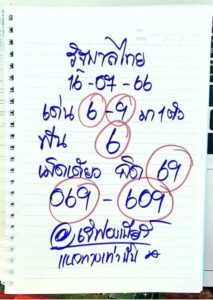 รัฐบาลไทย
16-07-66
เด่น 6-9 มา 1 ตัว
ฟัน 6
เม็ดเดียว ชิด 69
069-609
แนวทางเท่านั้น